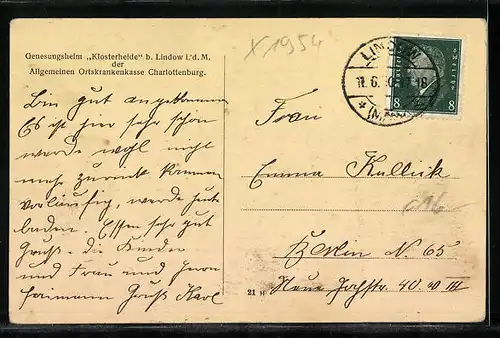 Genesungsheim „Klosterheide" b. Lindow i. d. M.
der
Allgemeinen Ortskrankenkasse Charlottenburg.
X 1954
LINDOW
11.6.
* (MARK)
8 8
Bin gut angekommen
Es ist hier sehr schön
werde wohl nicht
mehr zurück kommen
vorläufig, werde heute
baden. Essen sehr gut
Gruß die Kinder
und Frau und Herrn
Gruß Karl
Frau
Emma Kullick
Berlin N. 65
Neue Hochstr. 40. III
21 H